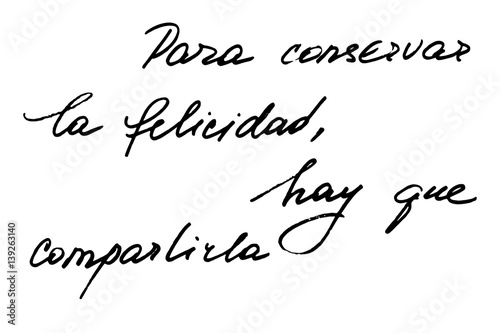 Para conservar
la felicidad,
hay que
compartirla
139263140
Adobe Stock